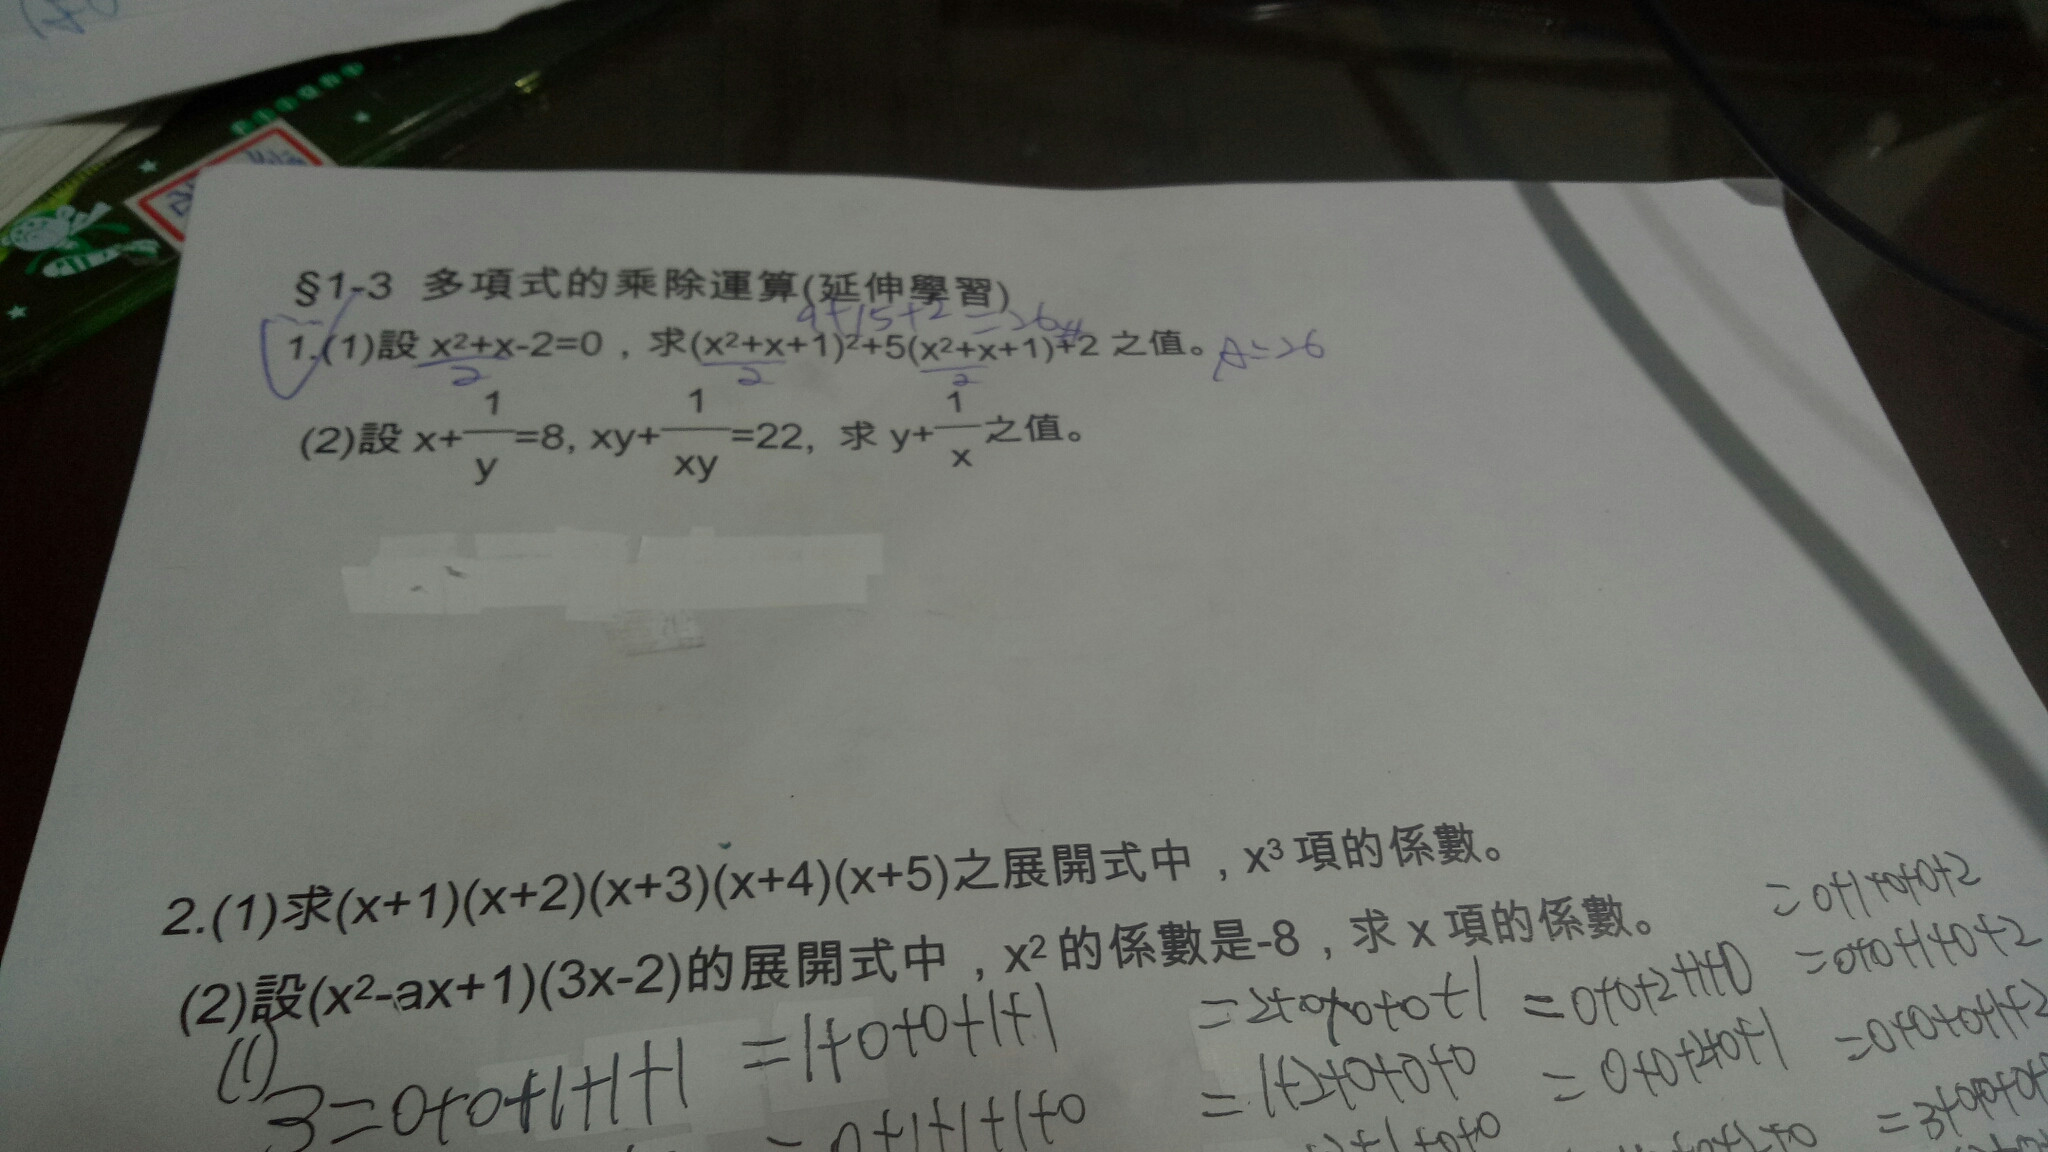 §1-3 多項式的乘除運算(延伸學習)
9+15+2=26#
1.(1)設 x²+x-2=0，求(x²+x+1)²+5(x²+x+1)+2 之值。 A=26
2 2 2
(2)設 x+1/y=8, xy+1/xy=22, 求 y+1/x 之值。
2.(1)求(x+1)(x+2)(x+3)(x+4)(x+5)之展開式中，x³項的係數。
(2)設(x²-ax+1)(3x-2)的展開式中，x²的係數是-8，求 x 項的係數。
=0+1+0+0+2
(1)
3=0+0+1+1+1 =1+0+0+1+1 =2+0+0+0+1 =0+0+2+1+0 =0+0+1+0+2
=0+1+1+1+0 =1+2+0+0+0 =0+0+2+0+1 =0+0+0+1+2